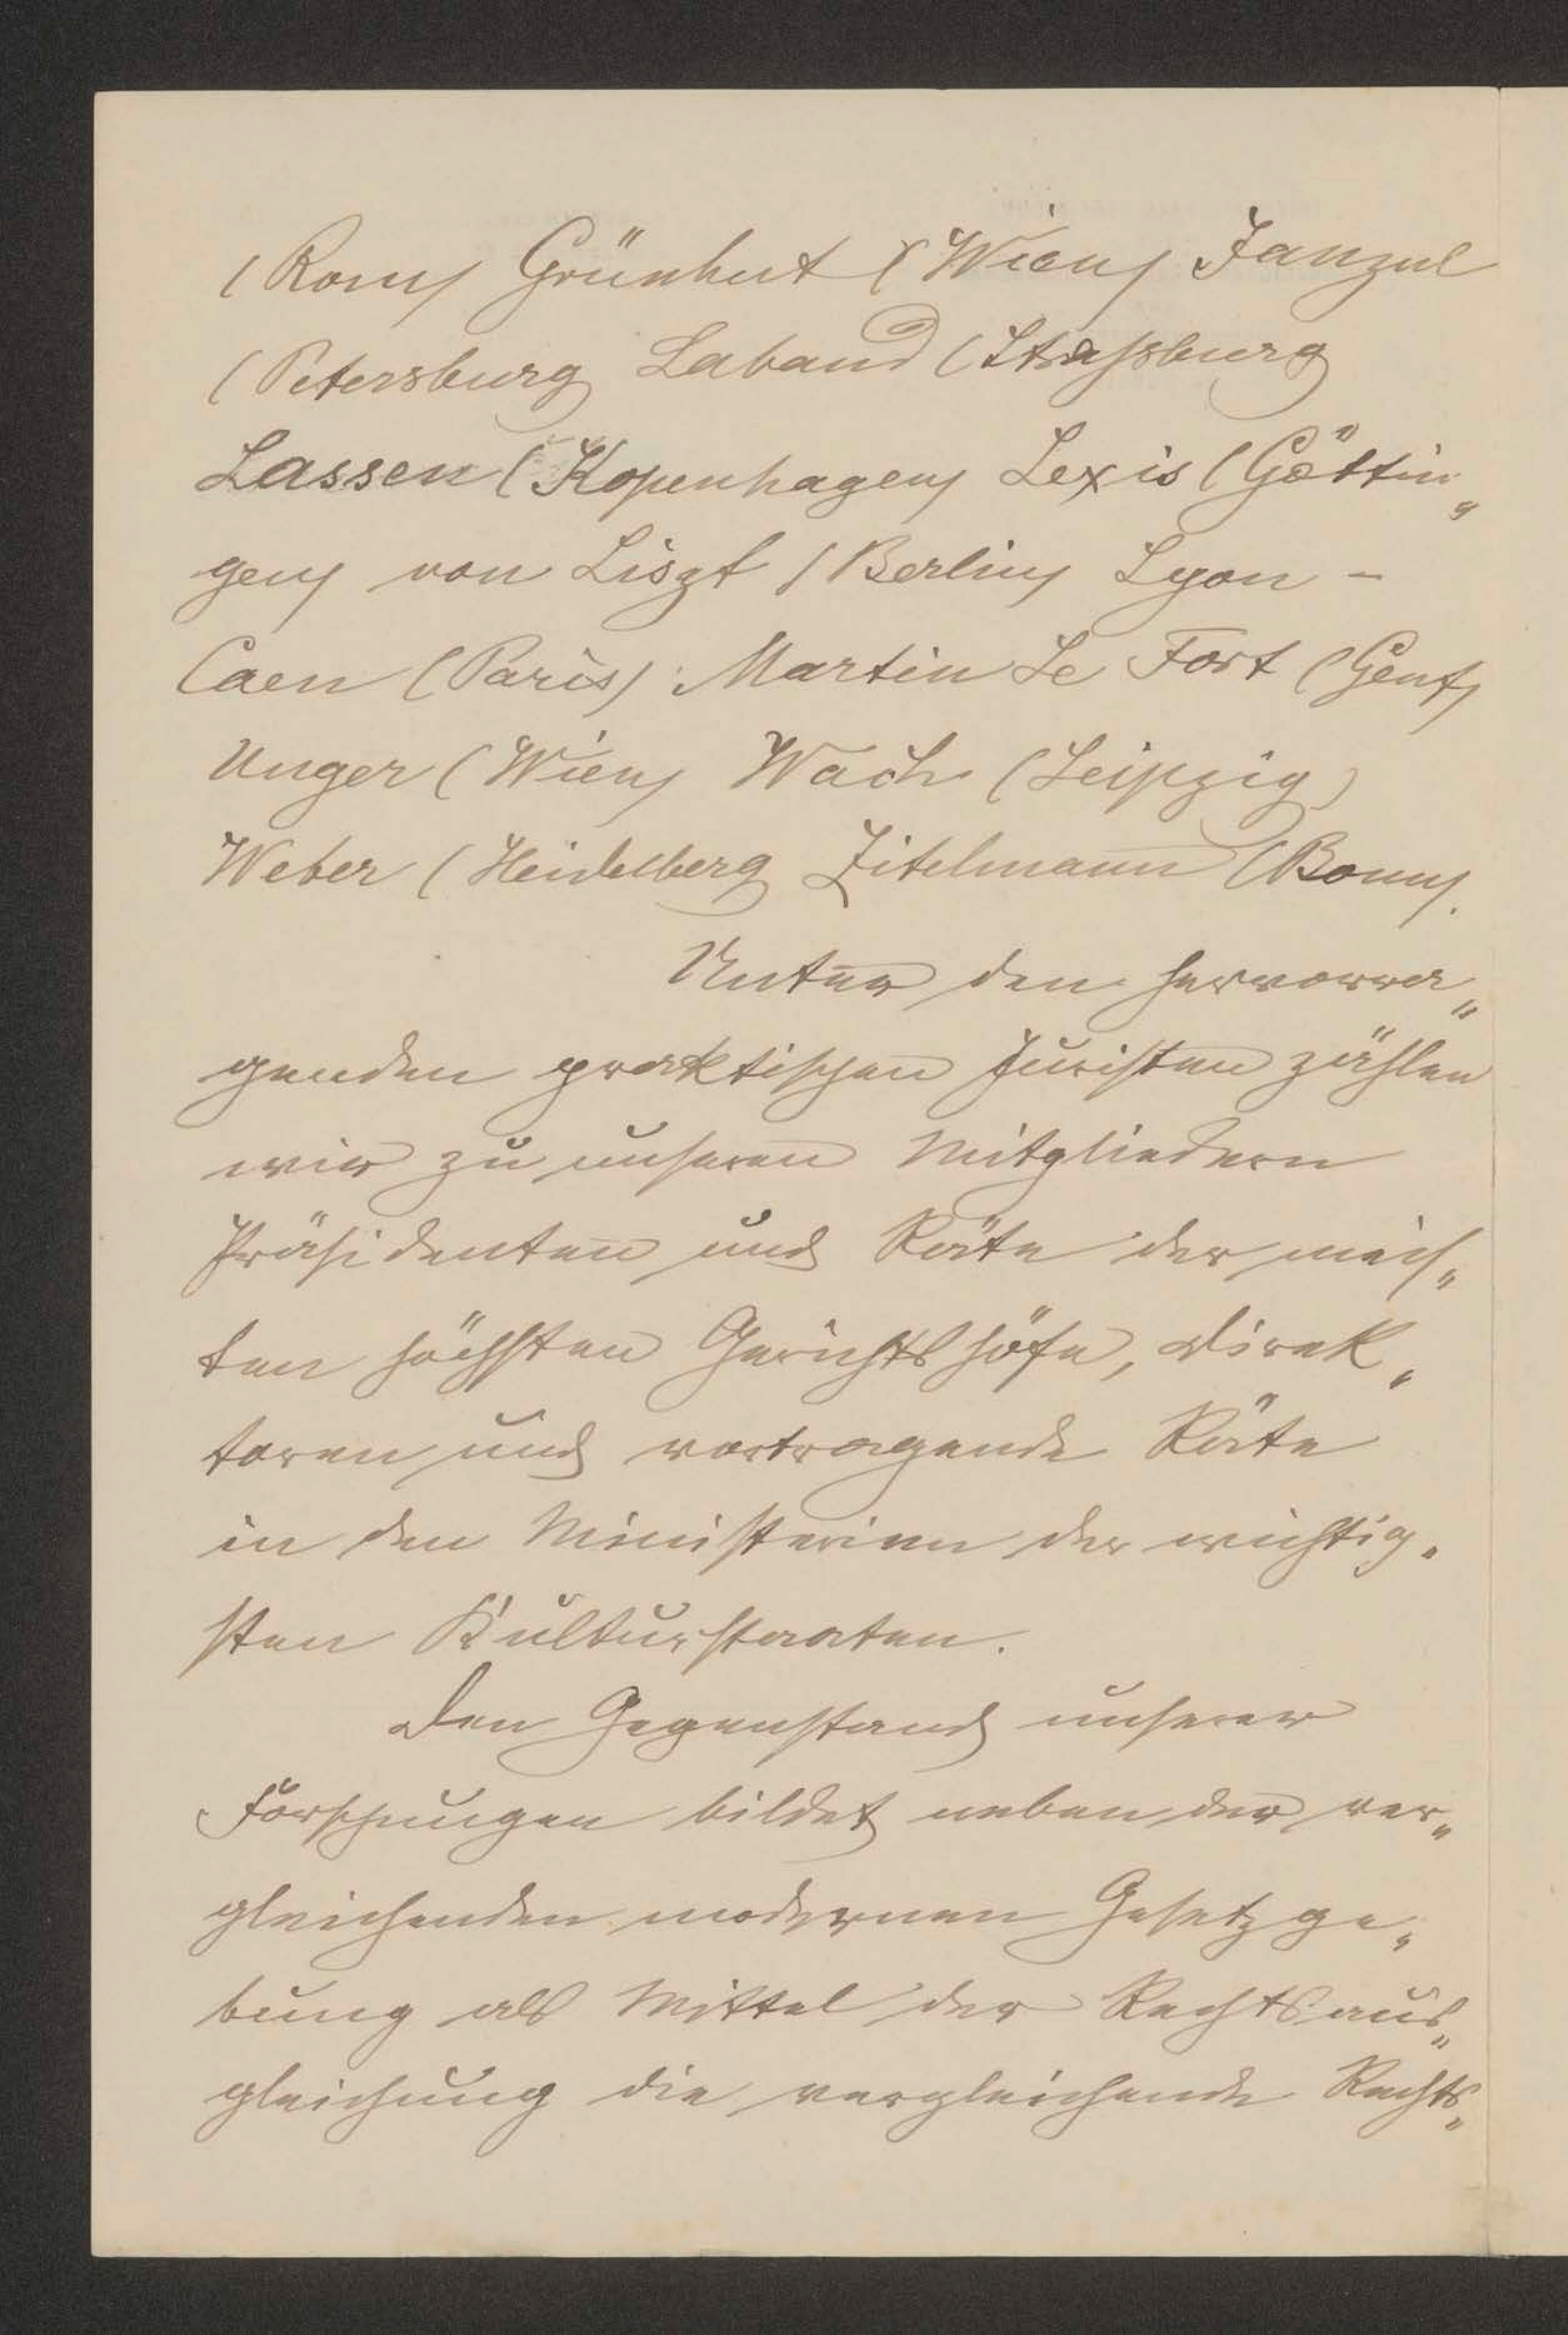 (Rom) Grünhut (Wien) Janzul
(Petersburg) Laband (Straßburg)
Lassen (Kopenhagen) Lexis (Göttin„
gen) von Liszt (Berlin) Lyon -
Caen (Paris) Martin Le Fort (Genf)
Unger (Wien) Wach (Leipzig)
Weber (Heidelberg) Zitelmann (Bonn).
Unter den hervorra„
genden praktischen Juristen zählen
wir zu unseren Mitgliedern
Präsidenten und Räte der meis„
ten höchsten Gerichtshöfe, Direk„
toren und vortragende Räte
in den Ministerien der wichtig„
sten Kulturstaaten.
Den Gegenstand unserer
Forschungen bildet neben der ver„
gleichenden modernen Gesetzge„
bung als Mittel der Rechtsaus„
gleichung die vergleichende Rechts„